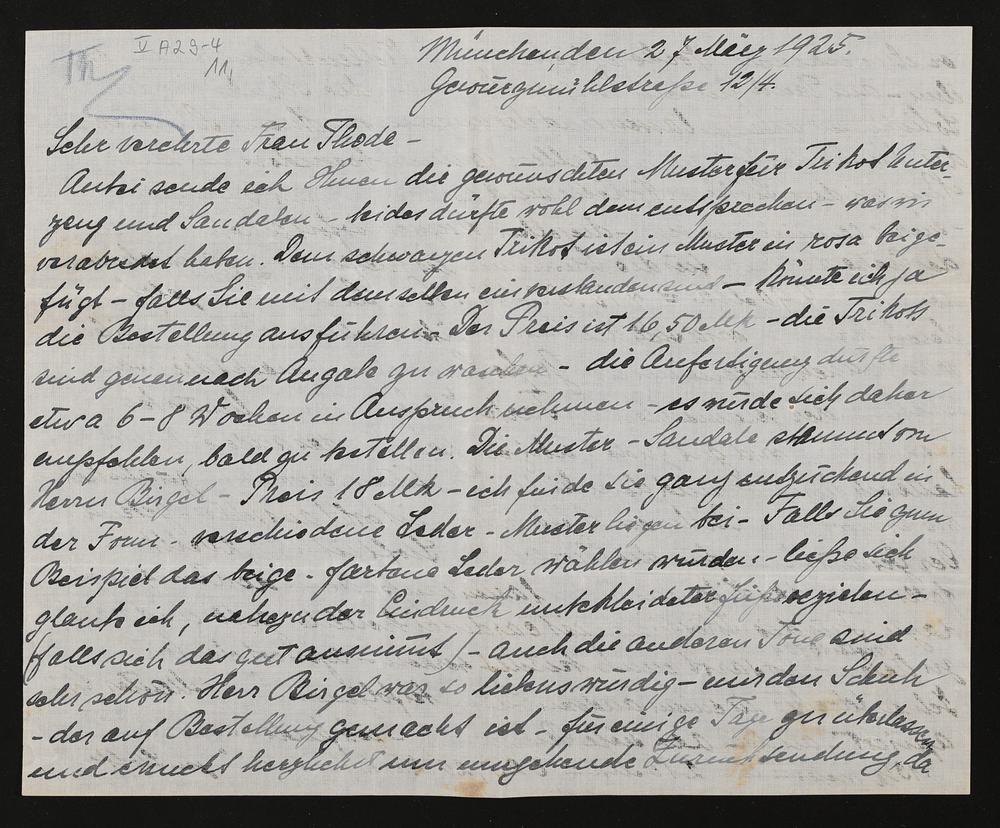 Th
V A29-4
11,
München, den 27 März 1925.
Gewürzmühlstraße 12/4.
Sehr verehrte Frau Thode –
Anbei sende ich Ihnen die gewünschten Muster für Trikot Unter-
zeug und Sandalen – beides dürfte wohl dem entsprechen – was wir
verabredet haben. Dem schwarzen Trikot ist ein Muster in rosa beige-
fügt – falls Sie mit demselben einverstanden sind – könnte ich ja
die Bestellung ausführen – Der Preis ist 16,50 Mk – die Trikots
sind genau nach Angabe zu waschen – die Anfertigung dürfte
etwa 6–8 Wochen in Anspruch nehmen – es würde sich daher
empfehlen, bald zu bestellen. Die Muster – Sandale stammt von
Herrn Birgel – Preis 18 Mk – ich finde sie ganz entzückend in
der Form – verschiedene Leder – Muster liegen bei – Falls Sie zum
Beispiel das beige – farbene Leder wählen würden – ließe sich
glaube ich, nahezu der Eindruck unbekleideter Füße erzielen –
(falls sich das gut ausnimmt) – auch die anderen Töne sind
sehr schön. Herr Birgel war so liebenswürdig – mir den Schuh
– der auf Bestellung gemacht ist – für einige Tage zu überlassen
und ersucht herzlichst um umgehende Zurücksendung, da